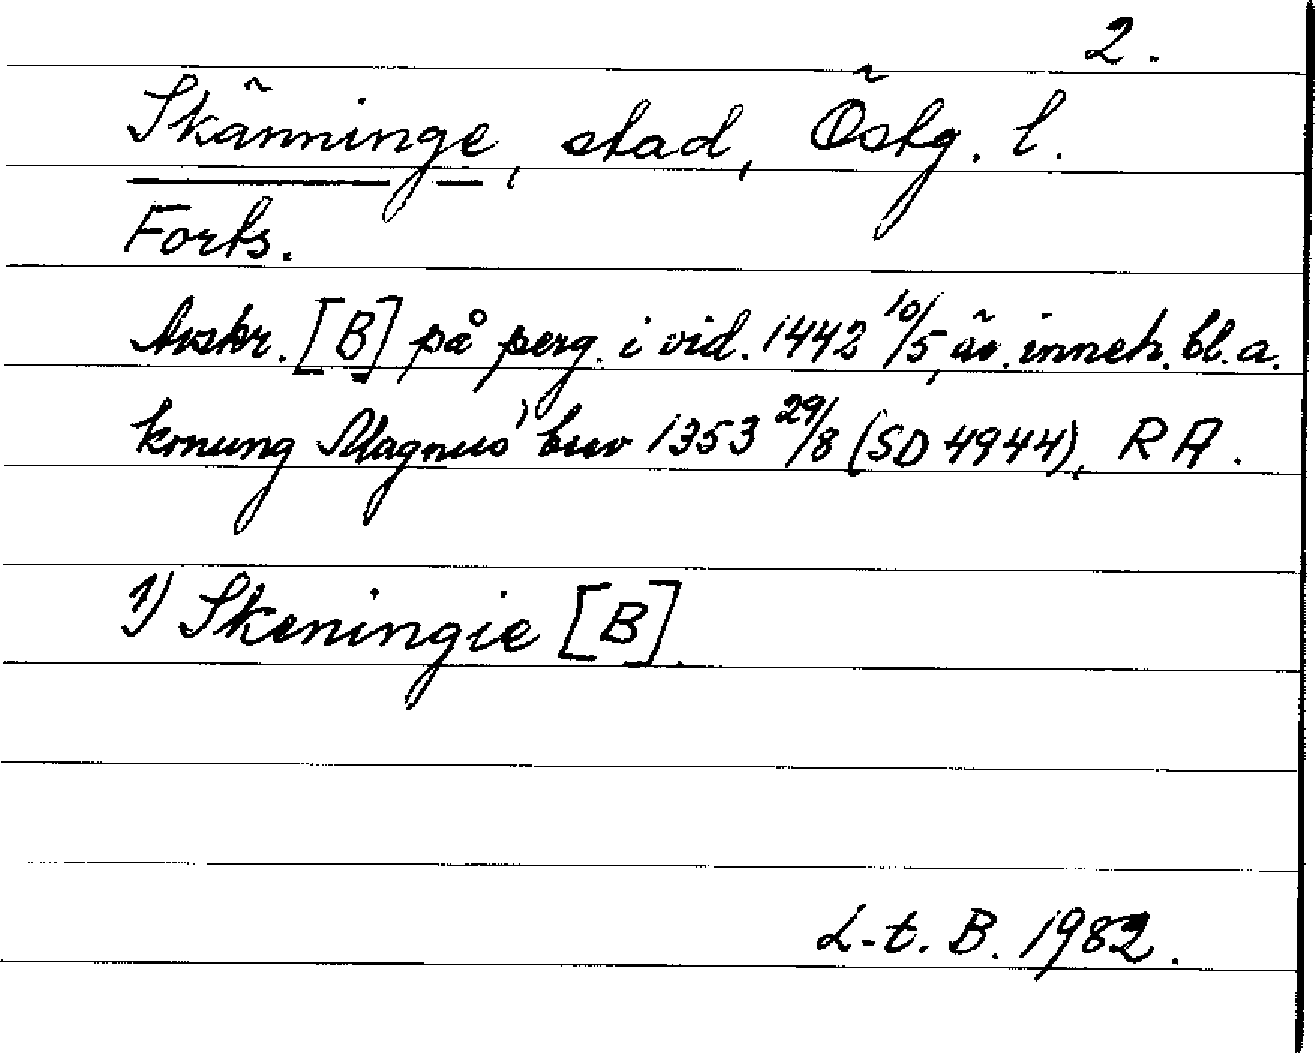 2.
Skänninge, stad, Östg. l.
Forts.
Avskr. [B] på perg. i vid. 1442 10/5, äv. inneh. bl. a.
konung Magnus' brev 1353 29/8 (SD 4944), RA.
1) Skeningie [B].
L-t. B. 1982.